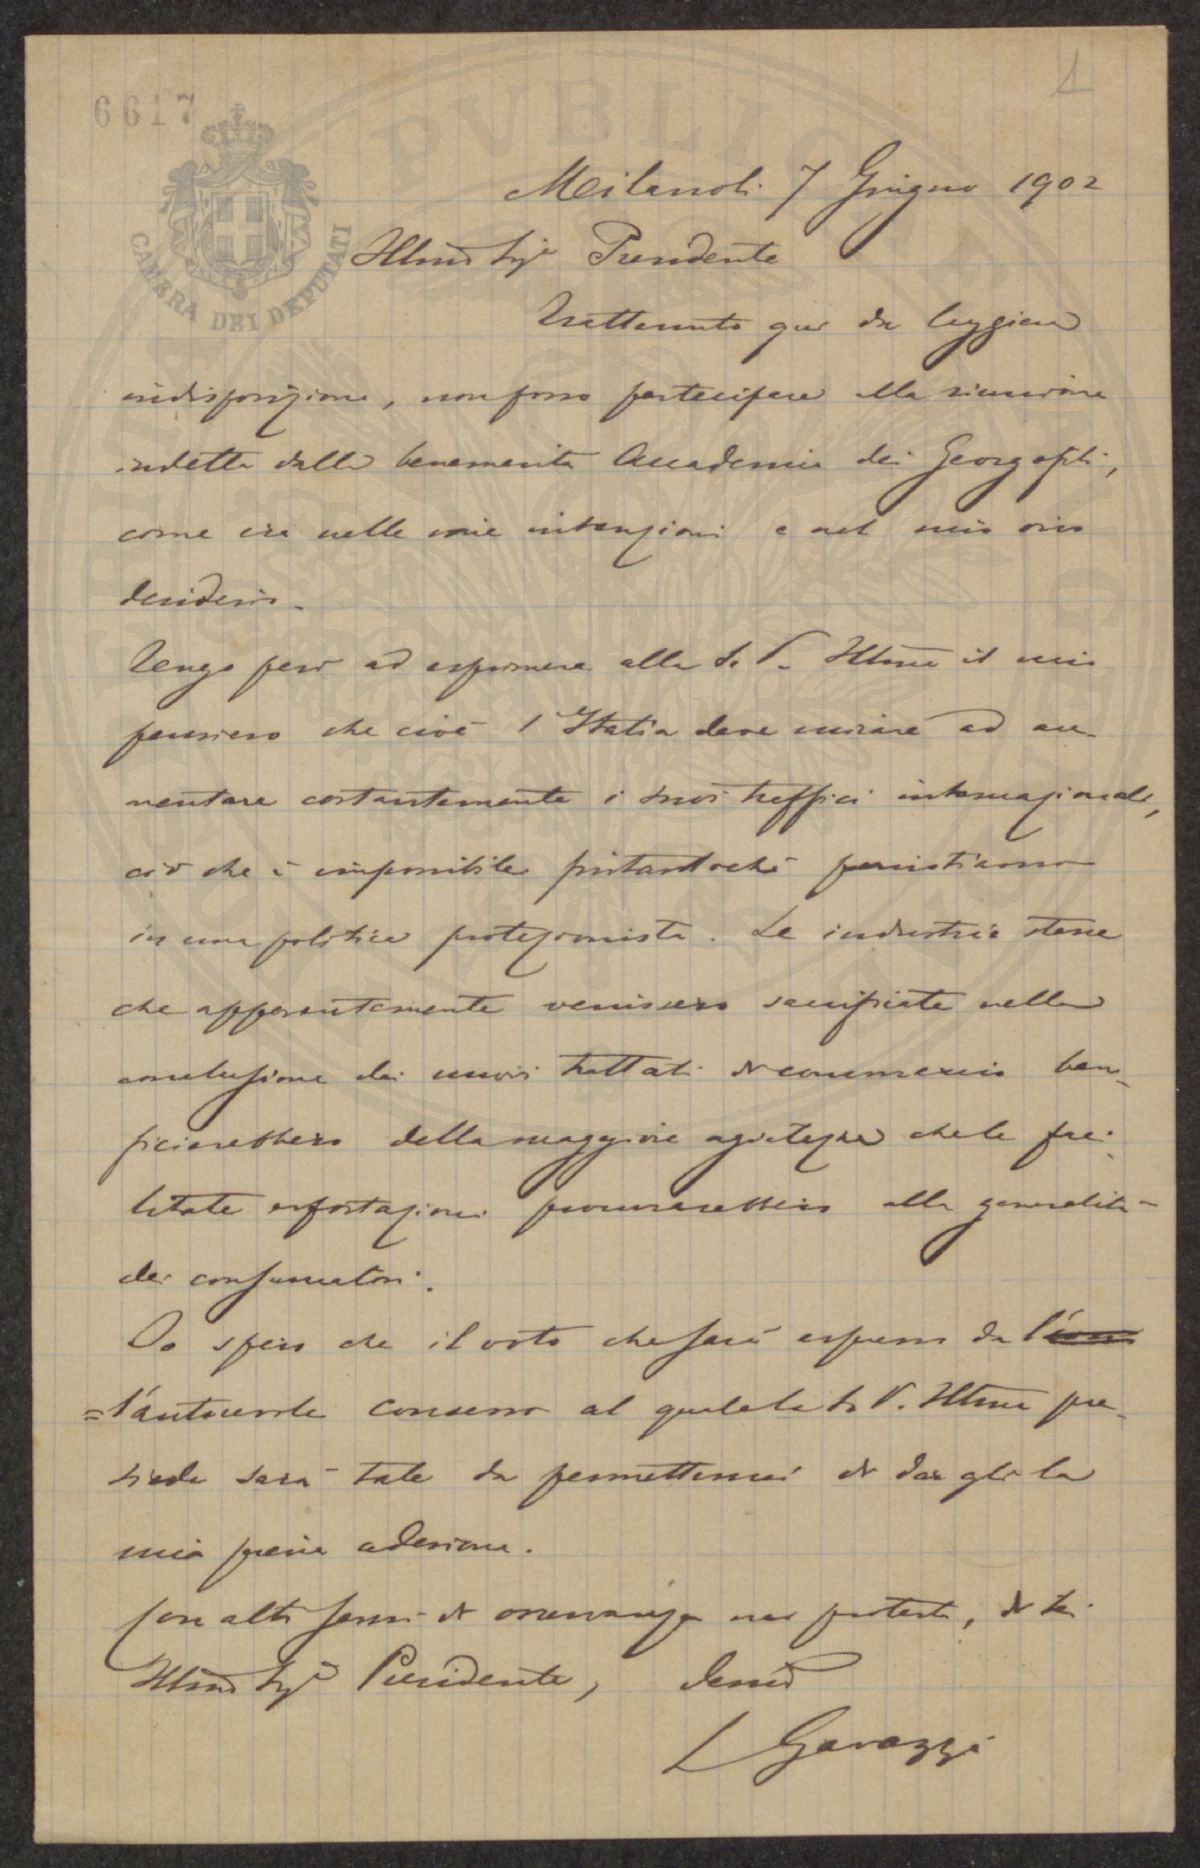 6617
1
CAMERA DEI DEPUTATI
Milano li 7 Giugno 1902
Illmo Sigr Presidente
Trattenuto qui da leggiera
indisposizione, non posso partecipare alla riunione
indetta dalla benemerita Accademia dei Georgofili,
come era nelle mie intenzioni e nel mio vivo
desiderio.
Tengo però ad esprimere alla S. V. Illma il mio
pensiero che cioè l'Italia deve mirare ad au-
mentare costantemente i suoi traffici internazionali,
ciò che è impossibile fintantochè persistiamo
in una politica protezionista. Le industrie stesse
che apparentemente venissero sacrificate nella
conclusione dei nuovi trattati di commercio bene-
ficierebbero della maggiore agiatezza che le faci-
litate esportazioni procurerebbero alla generalità
dei consumatori.
Io spero che il voto che sarà espresso da
=l'autorevole consesso al quale la S. V. Illma pre-
siede sarà tale da permettermi di dargli la
mia piena adesione.
Con alti sensi di osservanza mi protesto, di Lei
Illmo Sigr Presidente, devmo
L Gavazzi